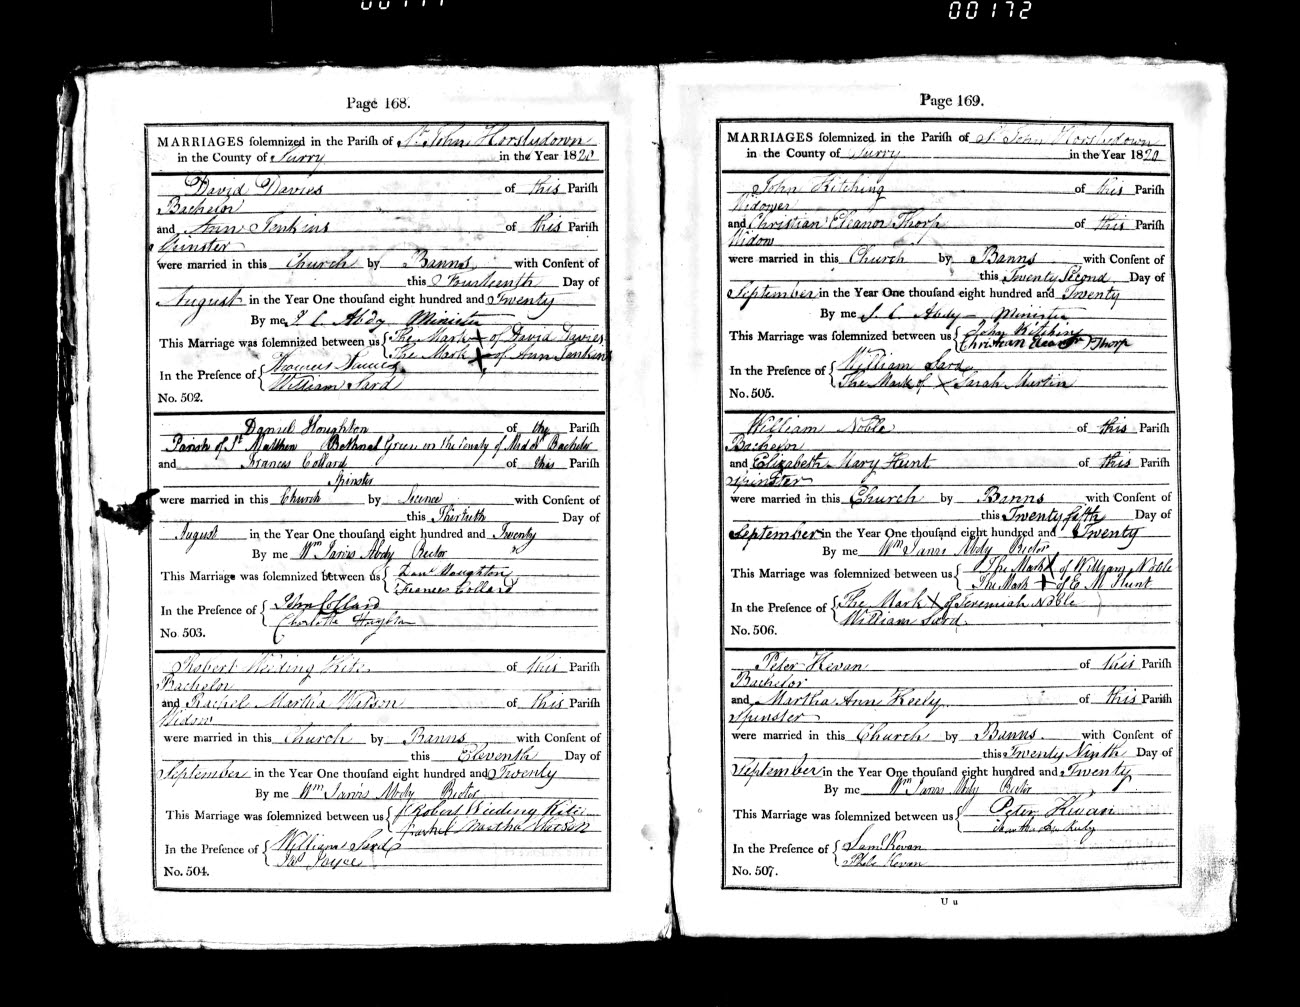 00171
00172
Page 168.
MARRIAGES solemnized in the Parish of St. John Horslydown
in the County of Surry in the Year 1820
David Davies of this Parish
Bachelor
and Ann Jenkins of this Parish
Spinster
were married in this Church by Banns with Consent of
this Fourteenth Day of
August in the Year One thousand eight hundred and Twenty
By me J. C. Abdy Minister
This Marriage was solemnized between us { The Mark X of David Davies
The Mark X of Ann Jenkins
In the Presence of { Thomas
William Sard
No. 502.
Daniel Houghton of the Parish
Parish of St Matthew Bethnal Green in the County of Middx Bachelor
and Frances Collard of this Parish
Spinster
were married in this Church by Licence with Consent of
this Thirtieth Day of
August in the Year One thousand eight hundred and Twenty
By me Wm Jarvis Abdy Rector
This Marriage was solemnized between us { Danl Houghton
Frances Collard
In the Presence of { John Collard
Charlotte Houghton
No. 503.
Robert Weeding Kite of this Parish
Bachelor
and Rachel Martha Watson of this Parish
Widow
were married in this Church by Banns with Consent of
this Eleventh Day of
September in the Year One thousand eight hundred and Twenty
By me Wm Jarvis Abdy Rector
This Marriage was solemnized between us { Robert Weeding Kite
Rachel Martha Watson
In the Presence of { William Sard
Jas Joyce
No. 504.
Page 169.
MARRIAGES solemnized in the Parish of St. John Horslydown
in the County of Surry in the Year 1820
John Kitching of this Parish
Widower
and Christian Eleanor Thorp of this Parish
Widow
were married in this Church by Banns with Consent of
this Twenty Second Day of
September in the Year One thousand eight hundred and Twenty
By me J. C. Abdy Minister
This Marriage was solemnized between us { John Kitching
Christian Eleanor Thorp
In the Presence of { William Sard
The Mark of X Sarah Martin
No. 505.
William Noble of this Parish
Bachelor
and Elizabeth Mary Hunt of this Parish
Spinster
were married in this Church by Banns with Consent of
this Twenty fifth Day of
September in the Year One thousand eight hundred and Twenty
By me Wm Jarvis Abdy Rector
This Marriage was solemnized between us { The Mark X of William Noble
The Mark X of E M Hunt
In the Presence of { The Mark X of Jeremiah Noble
William Sard
No. 506.
Peter Kevan of this Parish
Bachelor
and Martha Ann Keely of this Parish
Spinster
were married in this Church by Banns with Consent of
this Twenty Ninth Day of
September in the Year One thousand eight hundred and Twenty
By me Wm Jarvis Abdy Rector
This Marriage was solemnized between us { Peter Kevan
Martha Ann Keely
In the Presence of { Saml Kevan
Phebe Kevan
No. 507.
U u